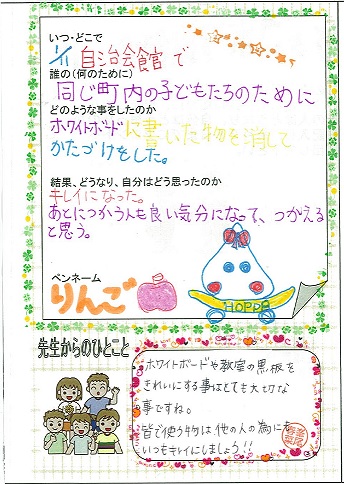 いつ・どこで
1/11 自治会館で
誰の(何のために)
同じ町内の子どもたちのために
どのような事をしたのか
ホワイトボードに書いた物を消して
かたづけをした。
結果、どうなり、自分はどう思ったのか
キレイになった。
あとにつかう人も良い気分になって、つかえる
と思う。
ペンネーム
りんご
HOPPE
先生からのひとこと
ホワイトボードや教室の黒板を
きれいにする事はとても大切な
事ですね。
皆で使う物は他の人の為にも
いつもキレイにしましょう!!